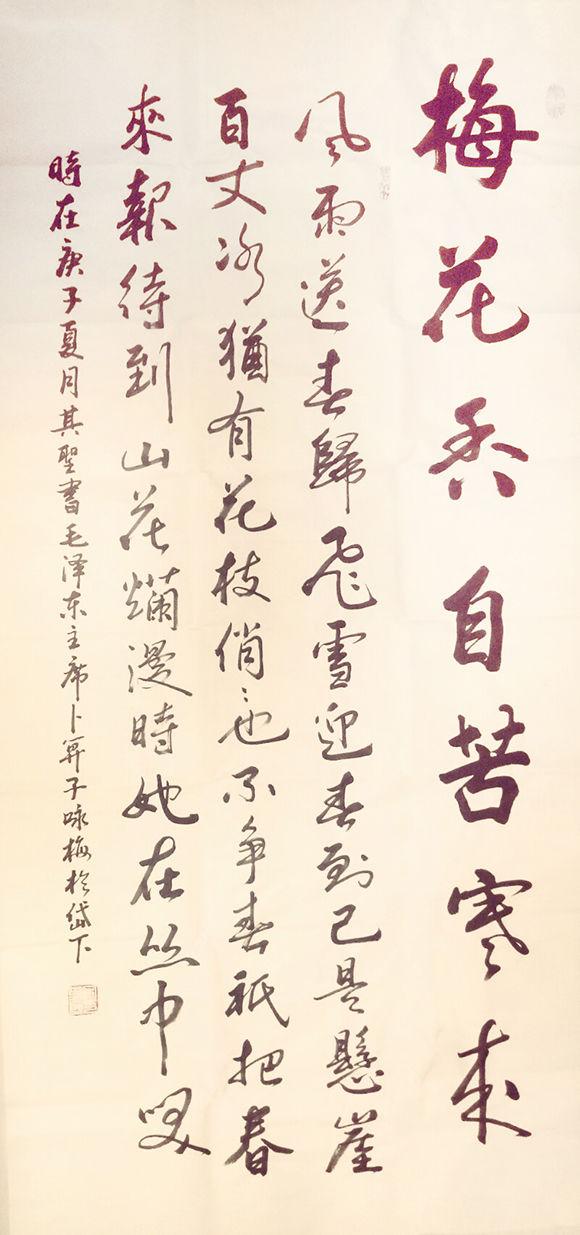 梅花香自苦寒来
風雨送春歸飛雪迎春到已是懸崖
百丈冰猶有花枝俏俏也不争春祇把春
來報待到山花爛漫時她在丛中笑
時在庚子夏月其聖書毛泽东主席卜算子咏梅於岱下